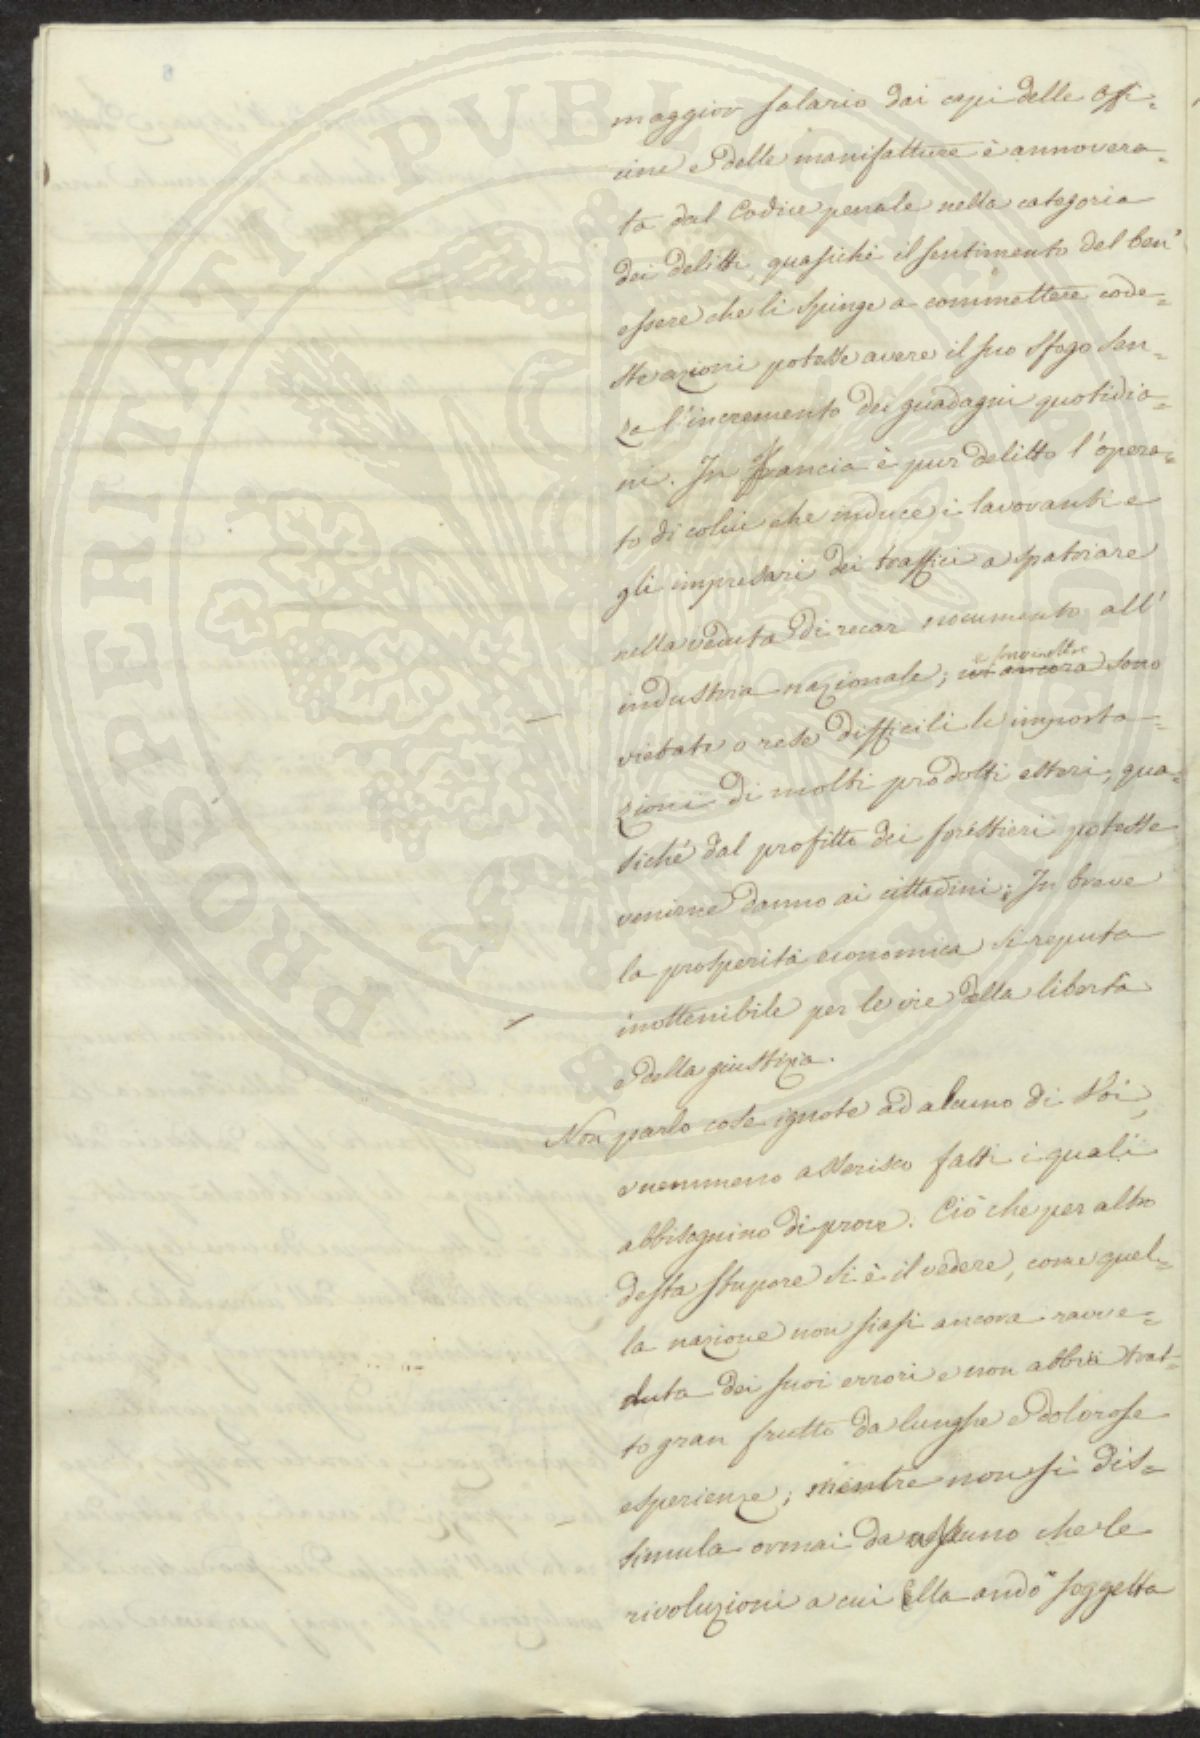 maggior salario dai capi delle offi=
cine e delle manifatture è annovera=
ta dal Codice penale nella categoria
dei delitti, quasichè il sentimento del ben'
essere che li spinge a commettere code=
ste azioni potesse avere il suo sfogo sen=
za l'incremento dei guadagni quotidia=
ni. In Francia è pur delitto l'opera=
to di colui che induce i lavoranti e
gli impresari dei traffici a spatriare
nella veduta di recar nocumento all'
e sono
industria nazionale; ancora sono
vietate o rese difficili le importa=
zioni di molti prodotti esteri, qua=
sichè dal profitto dei forestieri potesse
venirne danno ai cittadini; In breve
la prosperità economica si reputa
inottenibile per le vie della libertà
e della giustizia.
Non parlo cose ignote ad alcuno di Voi,
e nemmeno asserisco fatti i quali
abbisognino di prove. Ciò che per altro
desta stupore si è il vedere, come quel=
la nazione non siasi ancora ravve=
duta dei suoi errori e non abbia trat=
to gran frutto da lunghe e dolorose
esperienze; mentre non si dis=
simula ormai da nessuno che le
rivoluzioni a cui Ella andò soggetta
PROSPERITATI PVBLICAE AVGENDAE